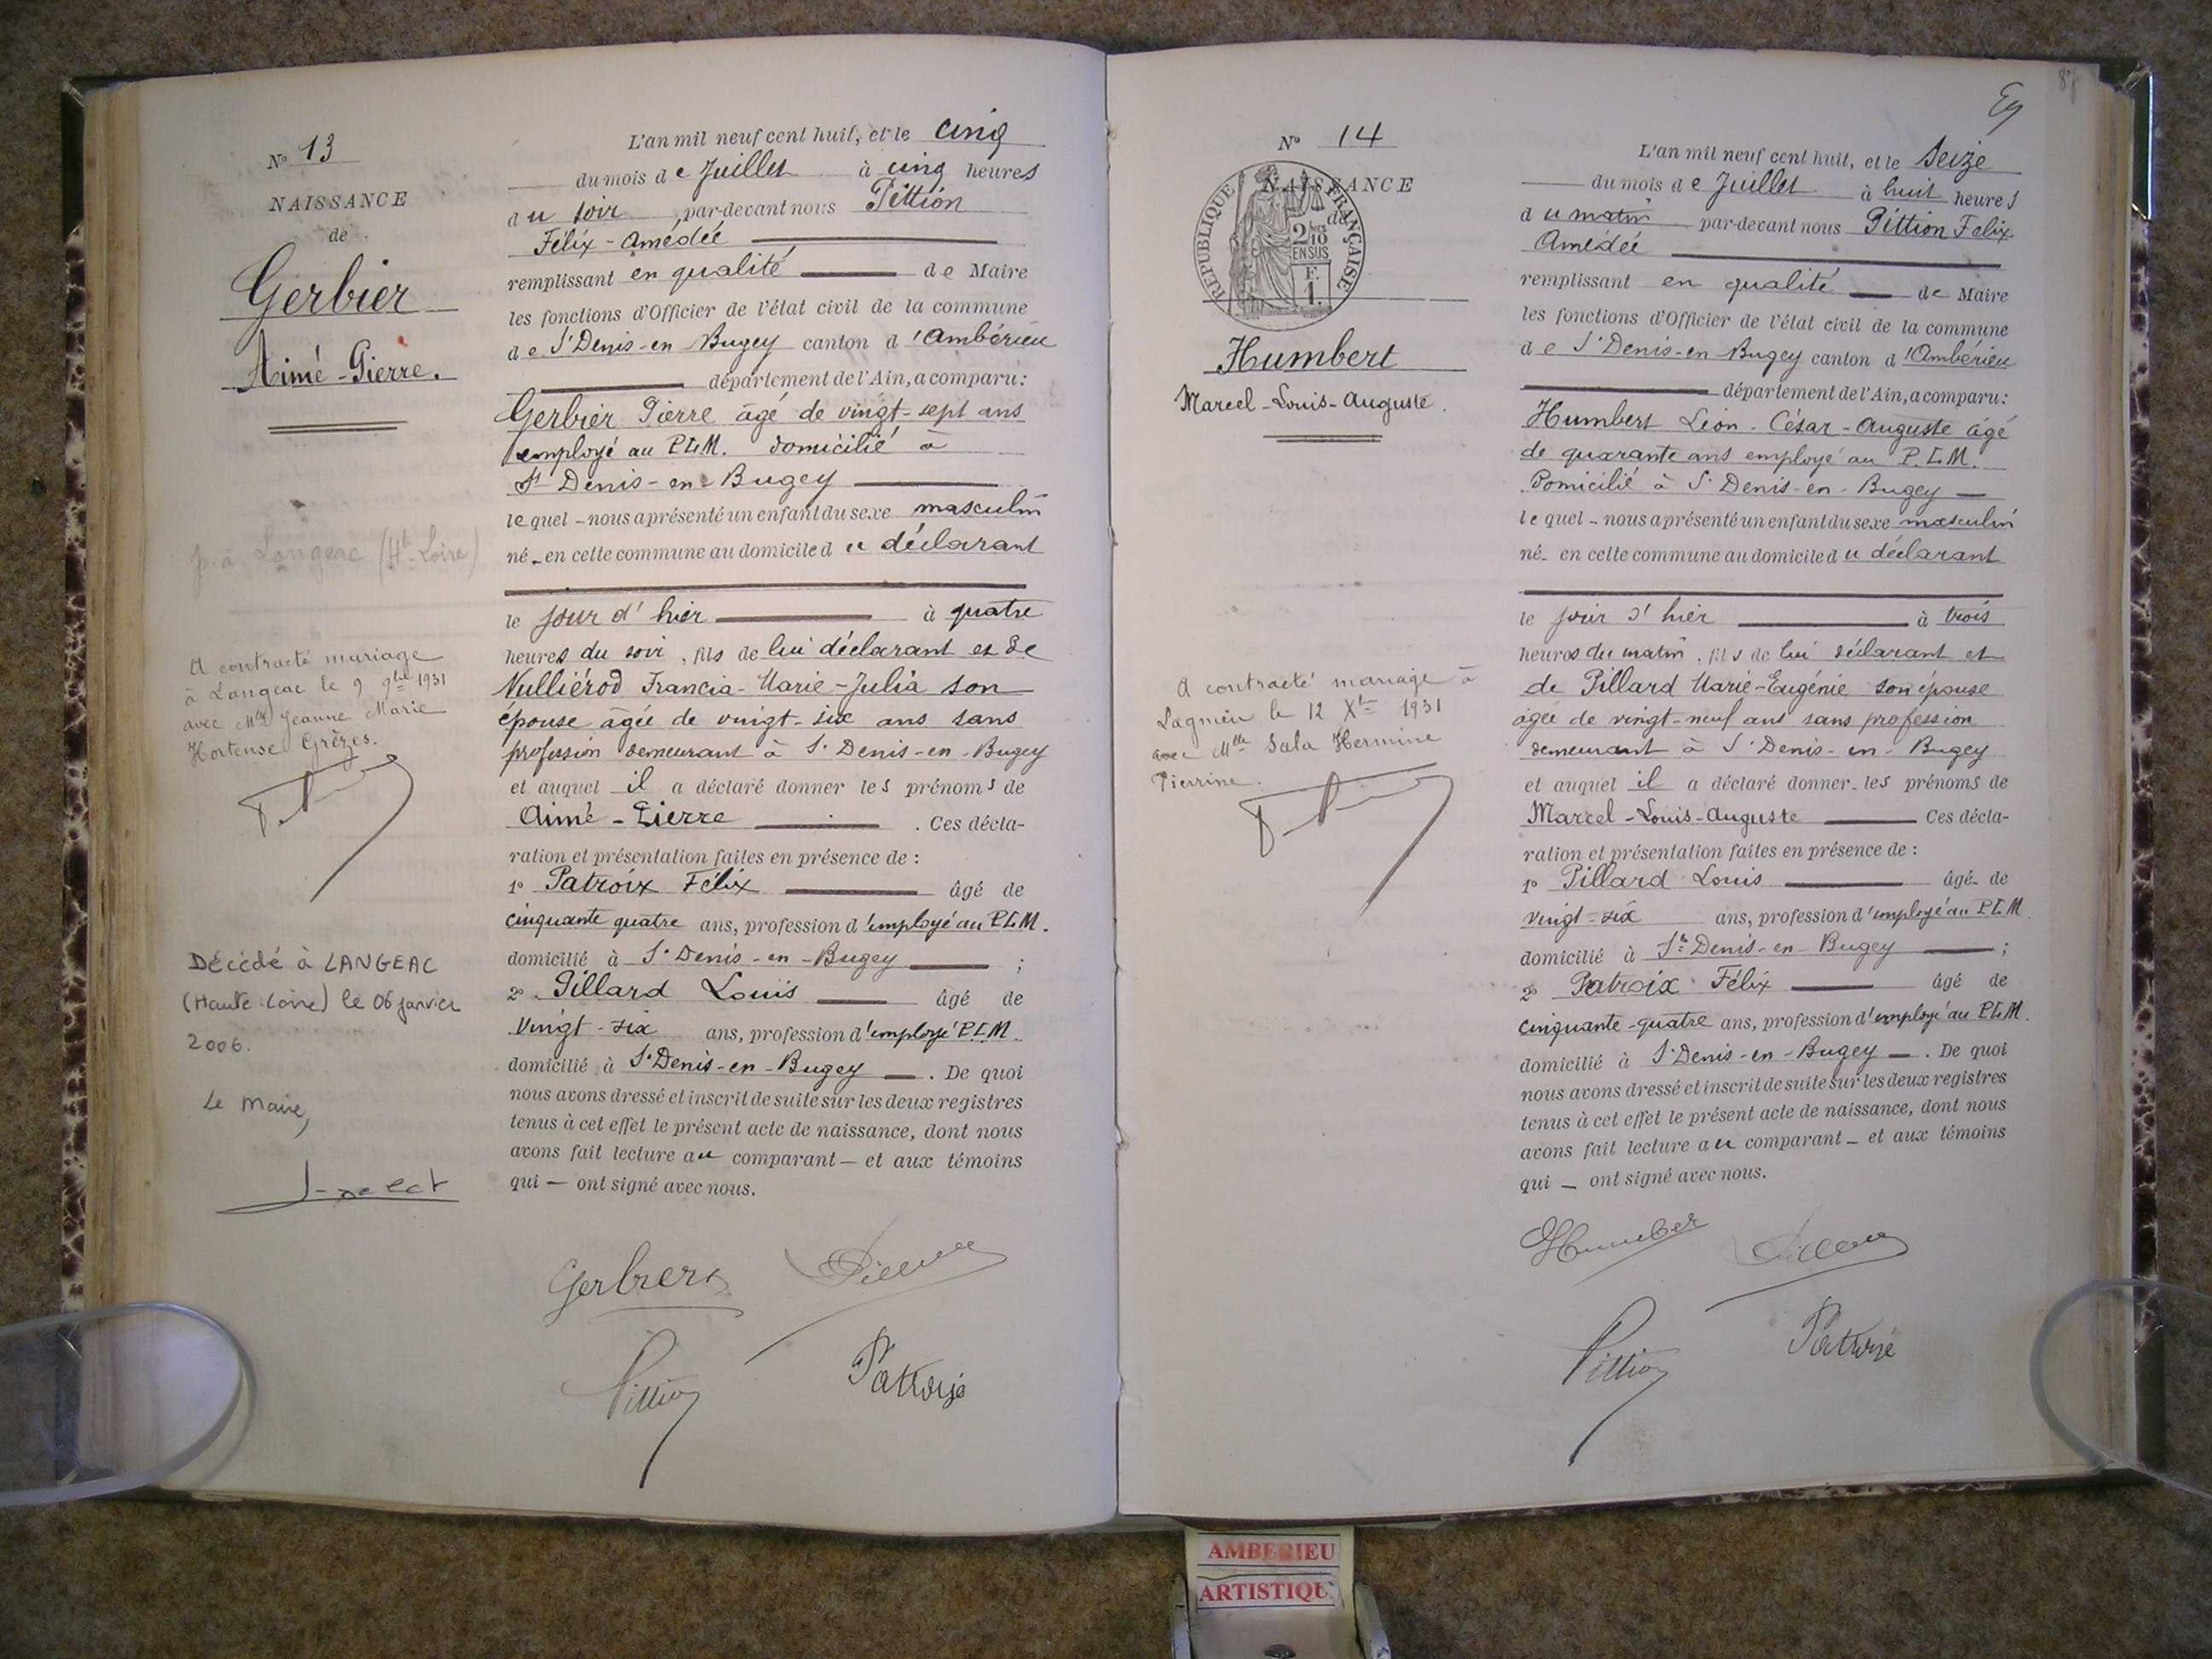 Nº 13
NAISSANCE
de
Gerbier
Aimé-Pierre.
p. à Langeac (Hte Loire)
A contracté mariage
à Langeac le 9 9bre 1931
avec Mlle Jeanne Marie
Hortense Grèzes.
Décédé à LANGEAC
(Haute-Loire) le 06 janvier
2006.
Le Maire,
L'an mil neuf cent huit, et le cinq
du mois de Juillet à cinq heures
du soir, par-devant nous Pittion
Félix-Amédée
remplissant en qualité de Maire
les fonctions d'Officier de l'état civil de la commune
de St Denis-en-Bugey canton d'Ambérieu
département de l'Ain, a comparu:
Gerbier Pierre âgé de vingt-sept ans
employé au P.L.M. domicilié à
St Denis-en-Bugey
lequel nous a présenté un enfant du sexe masculin
né en cette commune au domicile du déclarant
le jour d'hier à quatre
heures du soir, fils de lui déclarant et de
Nulliérod Francia-Marie-Julia son
épouse âgée de vingt-six ans sans
profession demeurant à St Denis-en-Bugey
et auquel il a déclaré donner les prénoms de
Aimé-Pierre. Ces décla-
ration et présentation faites en présence de :
1º Patroix Félix âgé de
cinquante quatre ans, profession d'employé au P.L.M.
domicilié à St Denis-en-Bugey ;
2º Pillard Louis âgé de
vingt-six ans, profession d'employé P.L.M.
domicilié à St Denis-en-Bugey. De quoi
nous avons dressé et inscrit de suite sur les deux registres
tenus à cet effet le présent acte de naissance, dont nous
avons fait lecture au comparant et aux témoins
qui ont signé avec nous.
Gerbier Pillard
Pittion Patroix
87
Nº 14
NAISSANCE
de
RÉPUBLIQUE FRANÇAISE
2/10
EN SUS
F.
1.
Humbert
Marcel-Louis-Auguste.
A contracté mariage à
Lagnieu le 12 Xbre 1931
avec Mlle Sala Hermine
Pierrine.
L'an mil neuf cent huit, et le seize
du mois de Juillet à huit heures
du matin par-devant nous Pittion Felix
Amédée
remplissant en qualité de Maire
les fonctions d'Officier de l'état civil de la commune
de St Denis-en-Bugey canton d'Ambérieu
département de l'Ain, a comparu:
Humbert Léon-César-Auguste âgé
de quarante ans employé au P.L.M.
Domicilié à St Denis-en-Bugey
lequel nous a présenté un enfant du sexe masculin
né en cette commune au domicile du déclarant
le jour d'hier à trois
heures du matin, fils de lui déclarant et
de Pillard Marie-Eugénie son épouse
âgée de vingt-neuf ans sans profession
demeurant à St Denis-en-Bugey
et auquel il a déclaré donner les prénoms de
Marcel-Louis-Auguste Ces décla-
ration et présentation faites en présence de :
1º Pillard Louis âgé de
vingt-six ans, profession d'employé au P.L.M.
domicilié à St Denis-en-Bugey ;
2º Patroix Félix âgé de
cinquante-quatre ans, profession d'employé au P.L.M.
domicilié à St Denis-en-Bugey. De quoi
nous avons dressé et inscrit de suite sur les deux registres
tenus à cet effet le présent acte de naissance, dont nous
avons fait lecture au comparant et aux témoins
qui ont signé avec nous.
Humbert Pillard
Pittion Patroix
AMBERIEU
ARTISTIQU